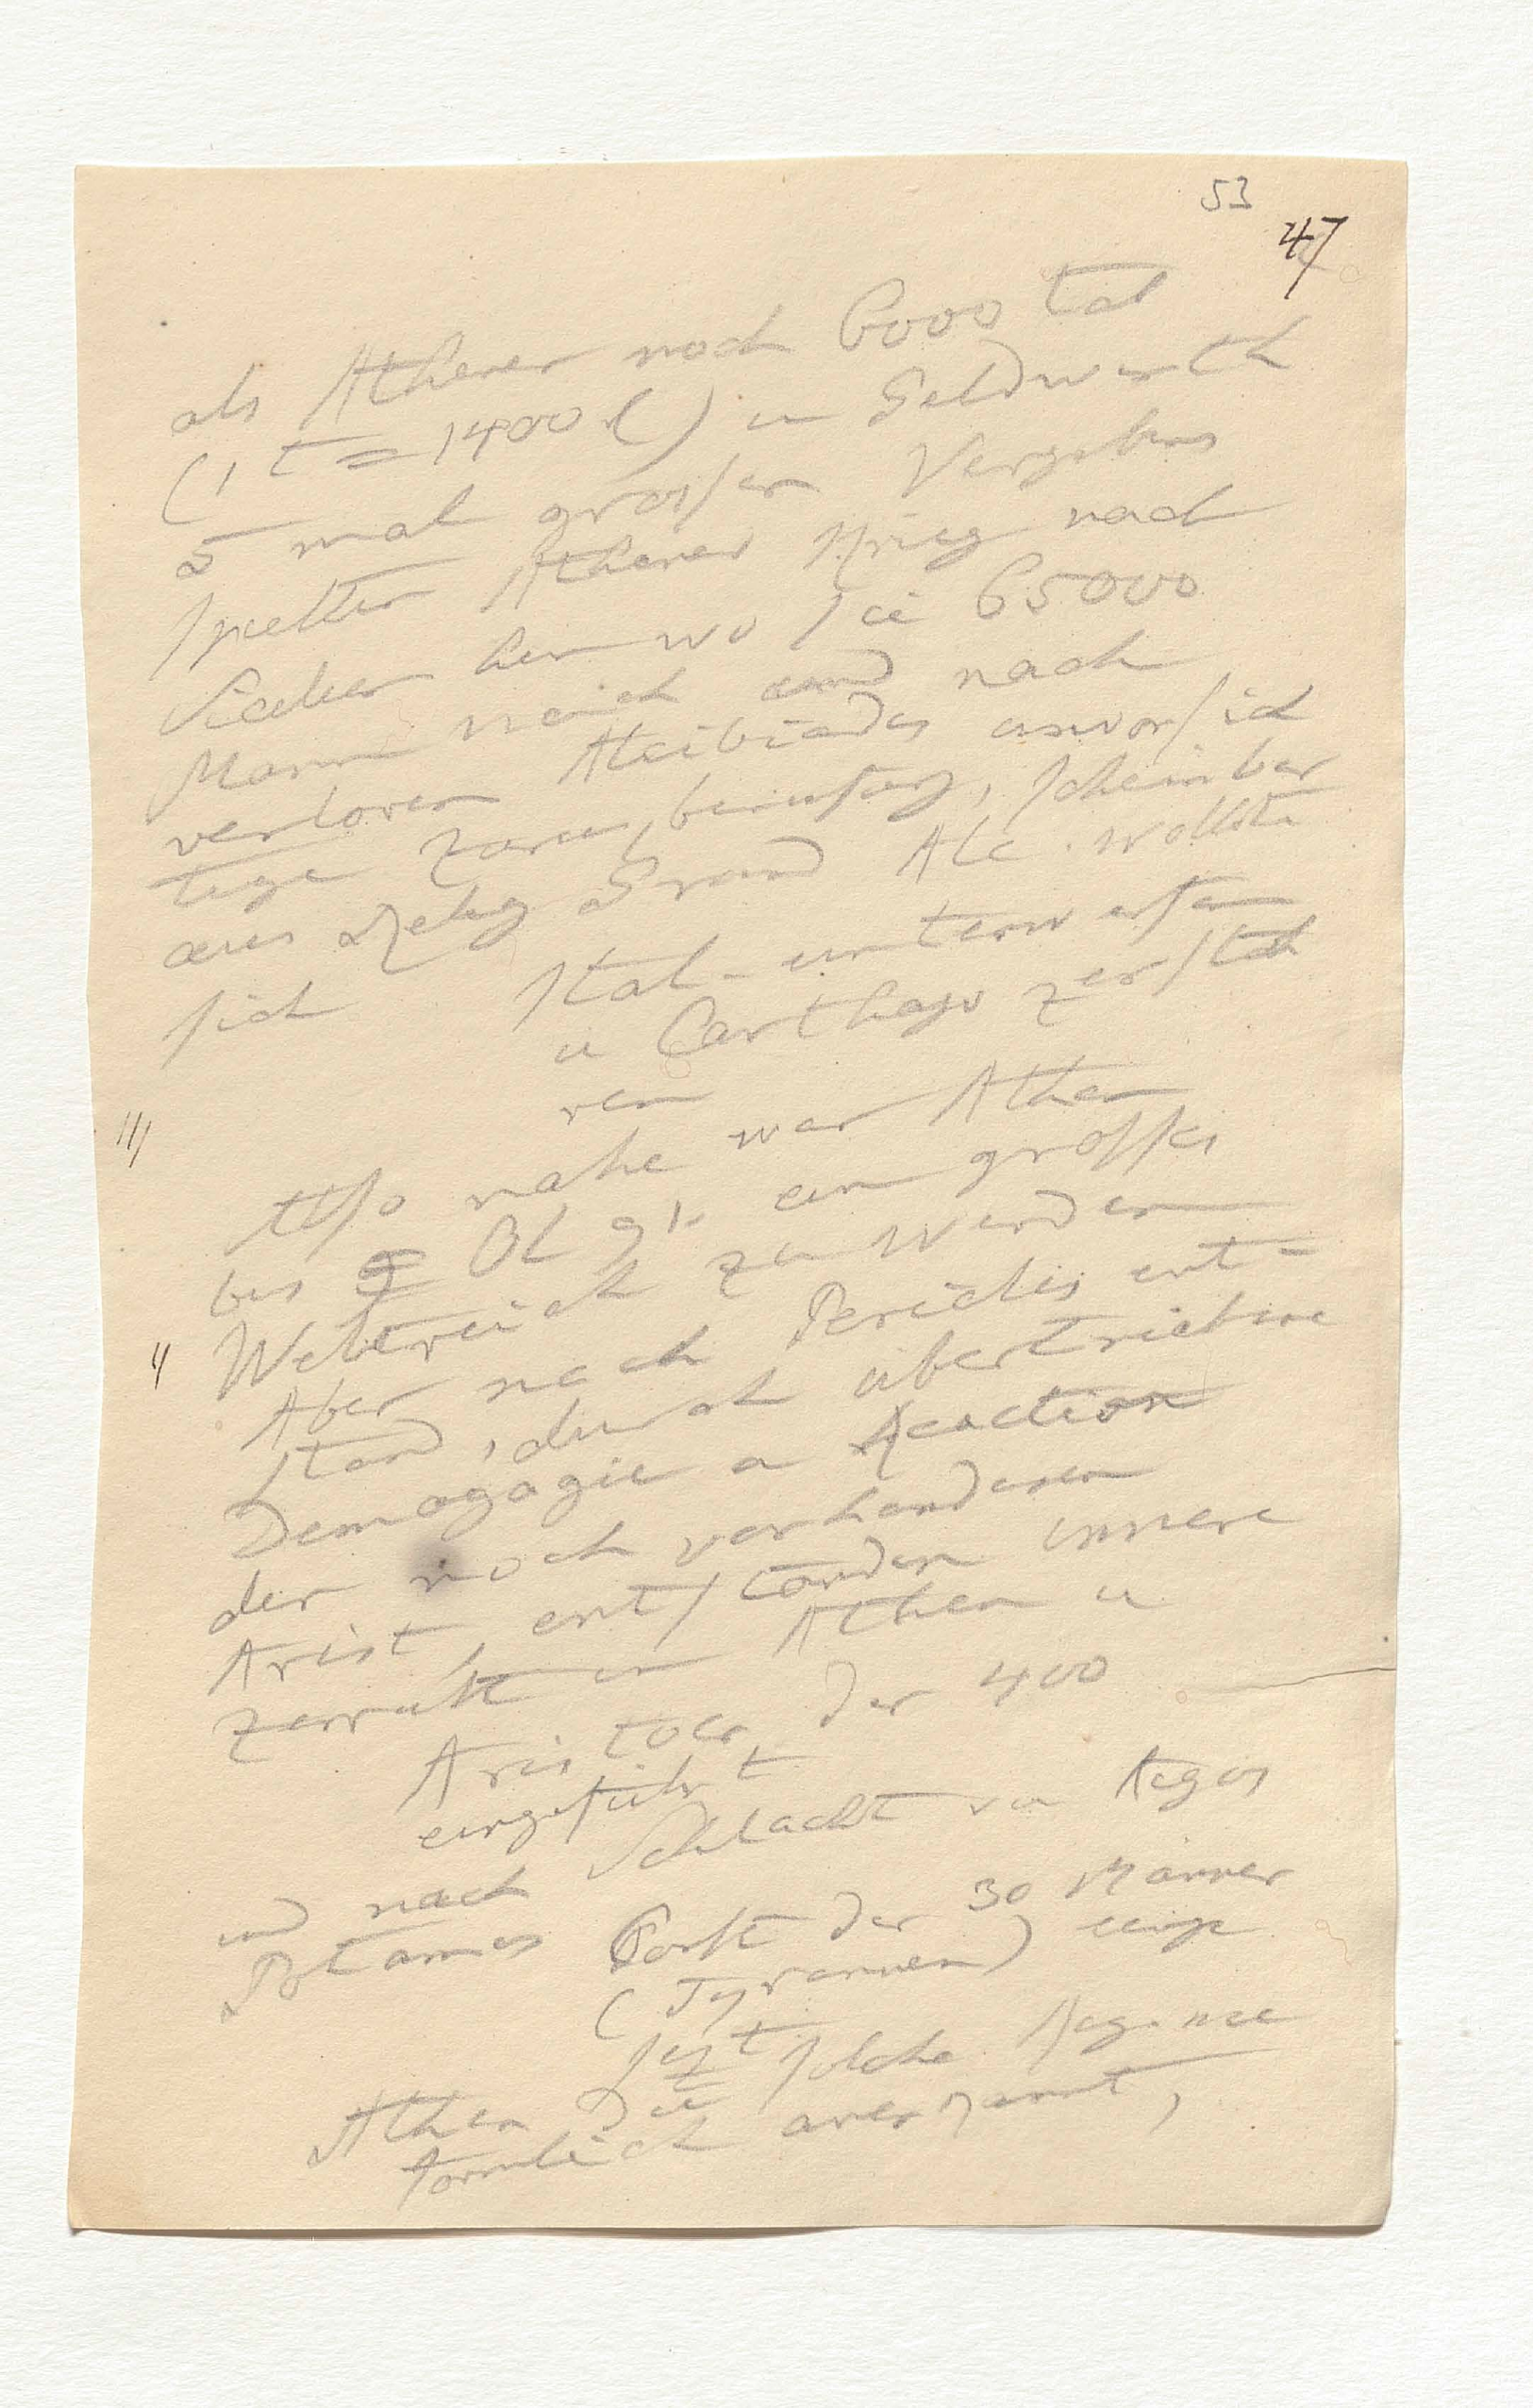 53
47
als Athener noch 6000 Tal
(1 t = 1400 ) u Geldwerth
5 mal grosser Vergebens
spielten Athener Krieg nach
Sicilien hin wo sie 65000
Mann nach und nach
verloren Alcibiades unvorsich
tige zurückberufung, scheinbar
aus Relig Grund Alc. wollte
sich Ital. unterwerfen
u Carthago zerstöh
ren
///
Also nahe war Athen
bis Ol 91. ein grosses
Weltreich zu werden
//
Aber nach Pericles ent=
stand, durch übertriebne
Demagogie u Reaction
der noch vorhandenen
Arist. entstanden innere
in Athen u
Aristocr. der 400
eingeführt
und nach Schlacht von Aegos
Potamos der 30 Männer
(Tyrannen)
jezt solche
Athen die
förmlich anerkannt,